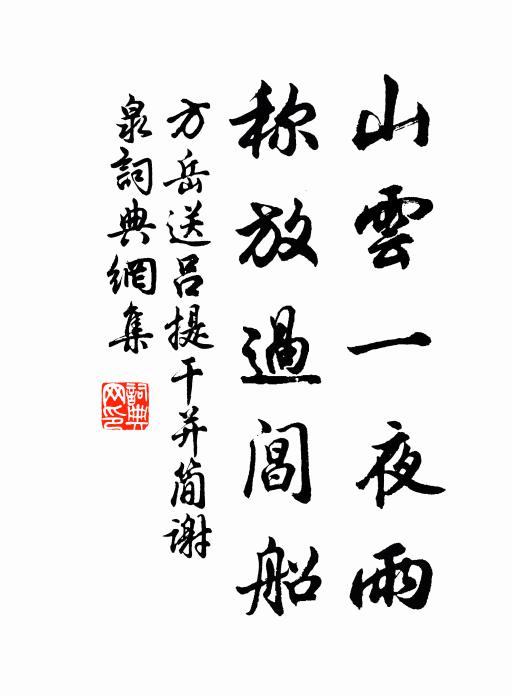 山雲一夜雨
称放過閶船
方岳送呂提干并简谢
泉詞典網集
詞典网印